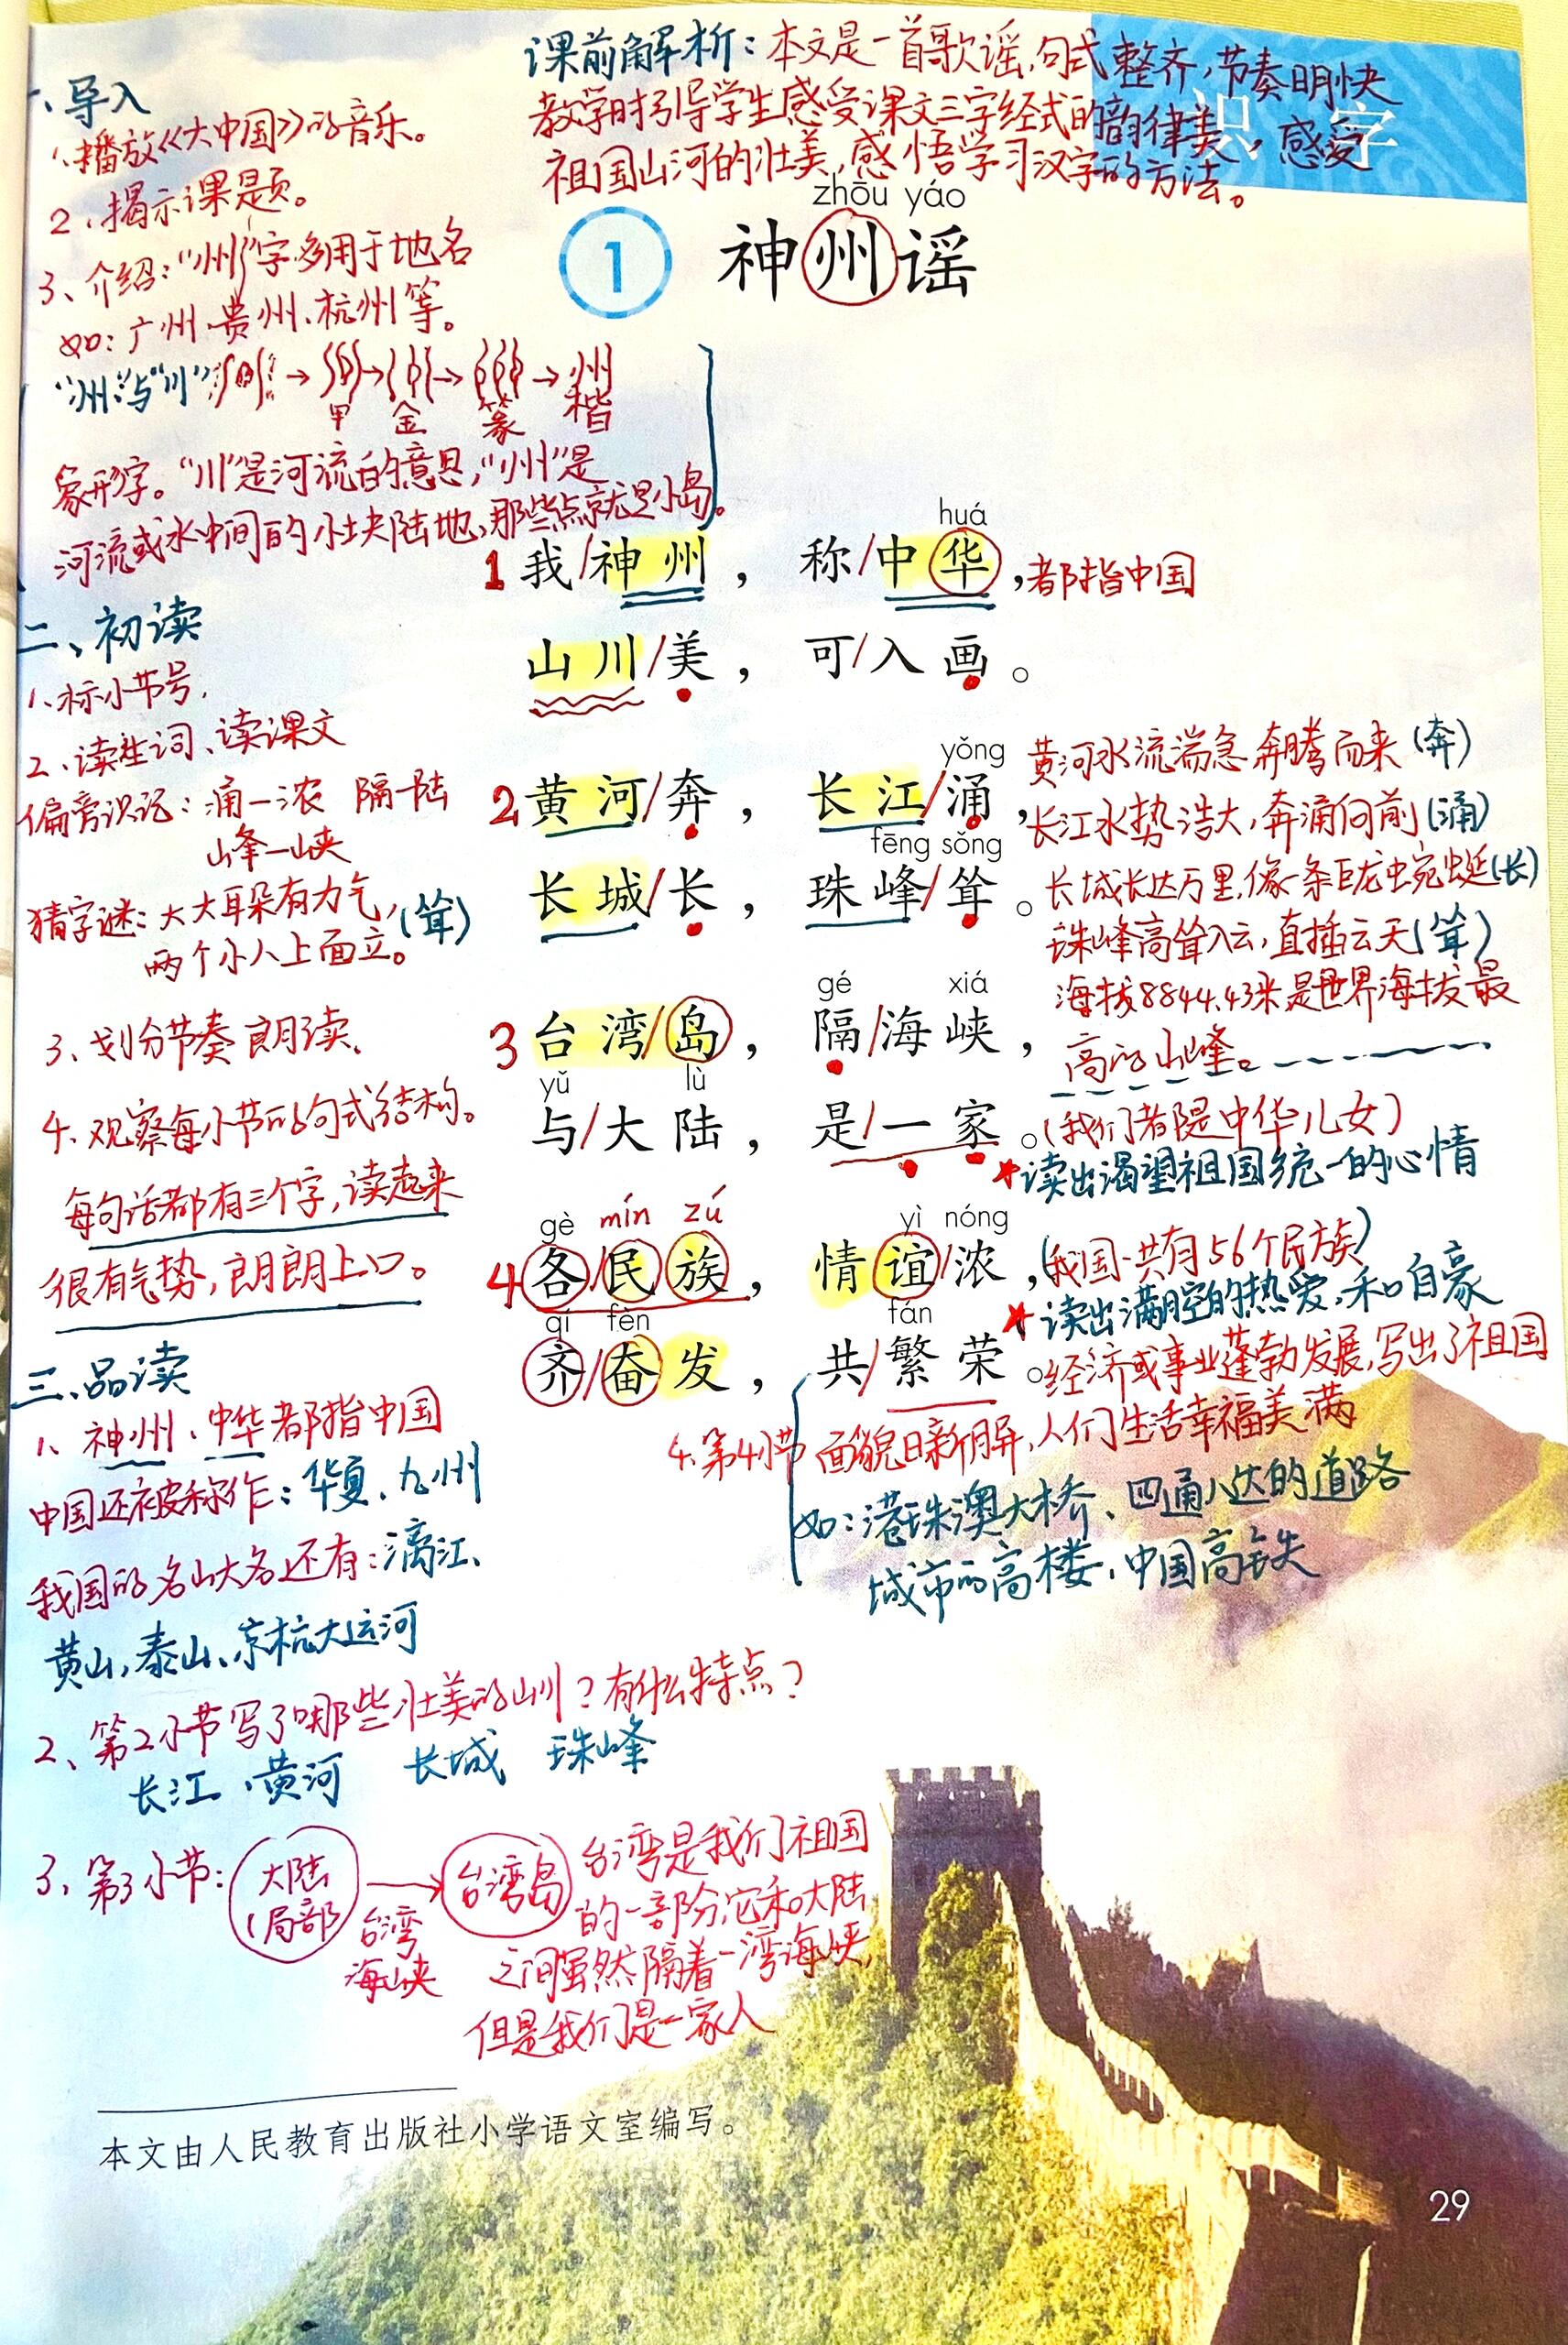 课前解析：本文是一首歌谣，句式整齐，节奏明快
教学时引导学生感受课文三字经式的韵律美，感受
祖国山河的壮美，感悟学习汉字的方法。
识字
zhōu yáo
1 神州谣
一、导入
1、播放《大中国》的音乐。
2、揭示课题。
3、介绍：“州”字多用于地名
如：广州、贵州、杭州等。
“州”与“川”：州→
→
→
→州
甲 金 篆 楷
象形字。“川”是河流的意思，“州”是
河流或水中间的小块陆地，那些点就是小岛。
huá
1 我/神州，称/中华，都指中国
山川/美，可/入画。
yǒng
2 黄河/奔，长江/涌，
fēng sǒng
长城/长，珠峰/耸。
gé xiá
3 台湾/岛，隔/海峡，
yǔ lù
与/大陆，是/一家。(我们都是中华儿女)
★读出渴望祖国统一的心情
gè mín zú yì nóng
4 各/民/族，情谊/浓，(我国一共有56个民族)
★读出满腔的热爱，和自豪
qí fèn fán
齐/奋发，共/繁荣。经济或事业蓬勃发展，写出了祖国
4.第4小节 面貌日新月异，人们生活幸福美满
如：港珠澳大桥、四通八达的道路
城市的高楼，中国高铁
黄河水流湍急 奔腾而来(奔)
长江水势浩大，奔涌向前(涌)
长城长达万里，像一条巨龙蜿蜒(长)
珠峰高耸入云，直插云天(耸)
海拔8844.43米是世界海拔最
高的山峰。
二、初读
1、标小节号，
2、读生词、读课文
偏旁识记：涌—浓 隔—陆
山峰—山峡
猜字谜：大大耳朵有力气，(耸)
两个小人上面立。
3、划分节奏 朗读、
4、观察每小节的句式结构。
每句话都有三个字，读起来
很有气势，朗朗上口。
三、品读
1、神州、中华都指中国
中国还被称作：华夏、九州
我国的名山大名还有：漓江、
黄山，泰山、京杭大运河
2、第2小节写了哪些壮美的山川？有什么特点？
长江、黄河 长城 珠峰
3、第3小节：大陆 局部 → 台湾岛
台湾海峡
台湾是我们祖国
的一部分，它和大陆
之间虽然隔着一湾海峡，
但是我们是一家人
本文由人民教育出版社小学语文室编写。
29